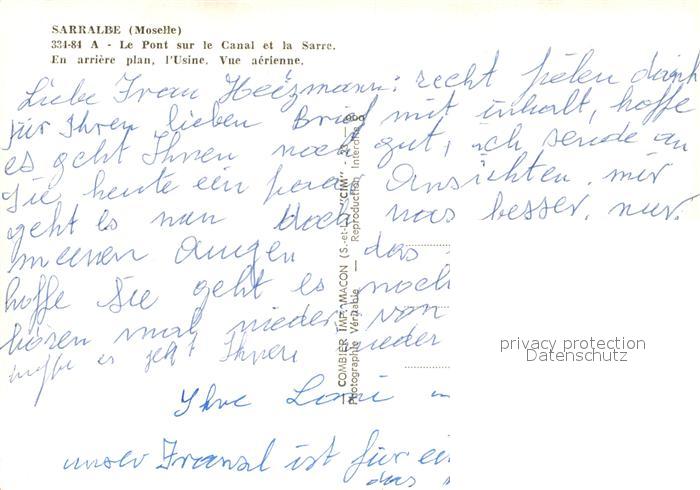 SARRALBE (Moselle)
334-84 A - Le Pont sur le Canal et la Sarre.
En arrière plan, l'Usine. Vue aérienne.
Liebe Frau Heizmann: recht fielen dank
für Ihren lieben Brief mit inhalt, hoffe
es geht Ihnen noch gut, ich sende an
Sie heute ein paar Ansichten, mir
geht es nun doch was besser, nur
meinen Augen das
hoffe Sie geht es noch
hören mal wieder von
hoffe es geht Ihnen wieder
Ihre
unser Franzl ist für ei
das
COMBIER IMP. MACON (S.-et-L.) "CIM"
Photographie Véritable - Reproduction Interdite
privacy protection
Datenschutz